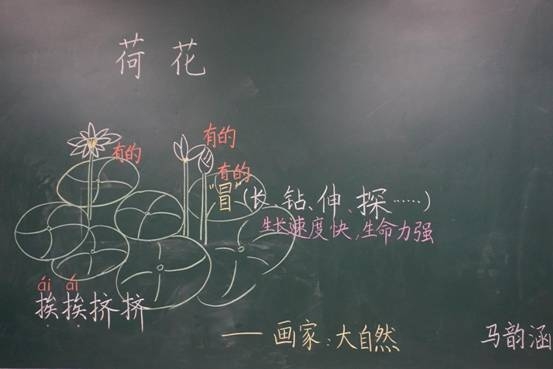 荷花
有的
有的
有的
"冒"(长、钻、伸、探……)
生长速度快、生命力强
ái ái
挨挨挤挤
——画家:大自然
马韵涵